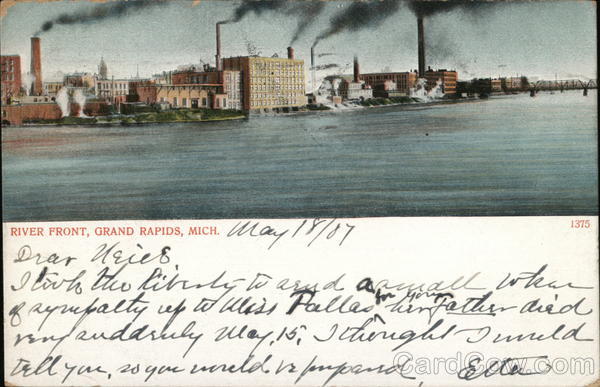 RIVER FRONT, GRAND RAPIDS, MICH. May 18/07
1375
Dear
I took the liberty to send a small token
of sympathy up to Miss Fallas for you, her Father died
very suddenly May, 15, I thought I would
tell you, so you would be prepared, Etta
CardCow.com